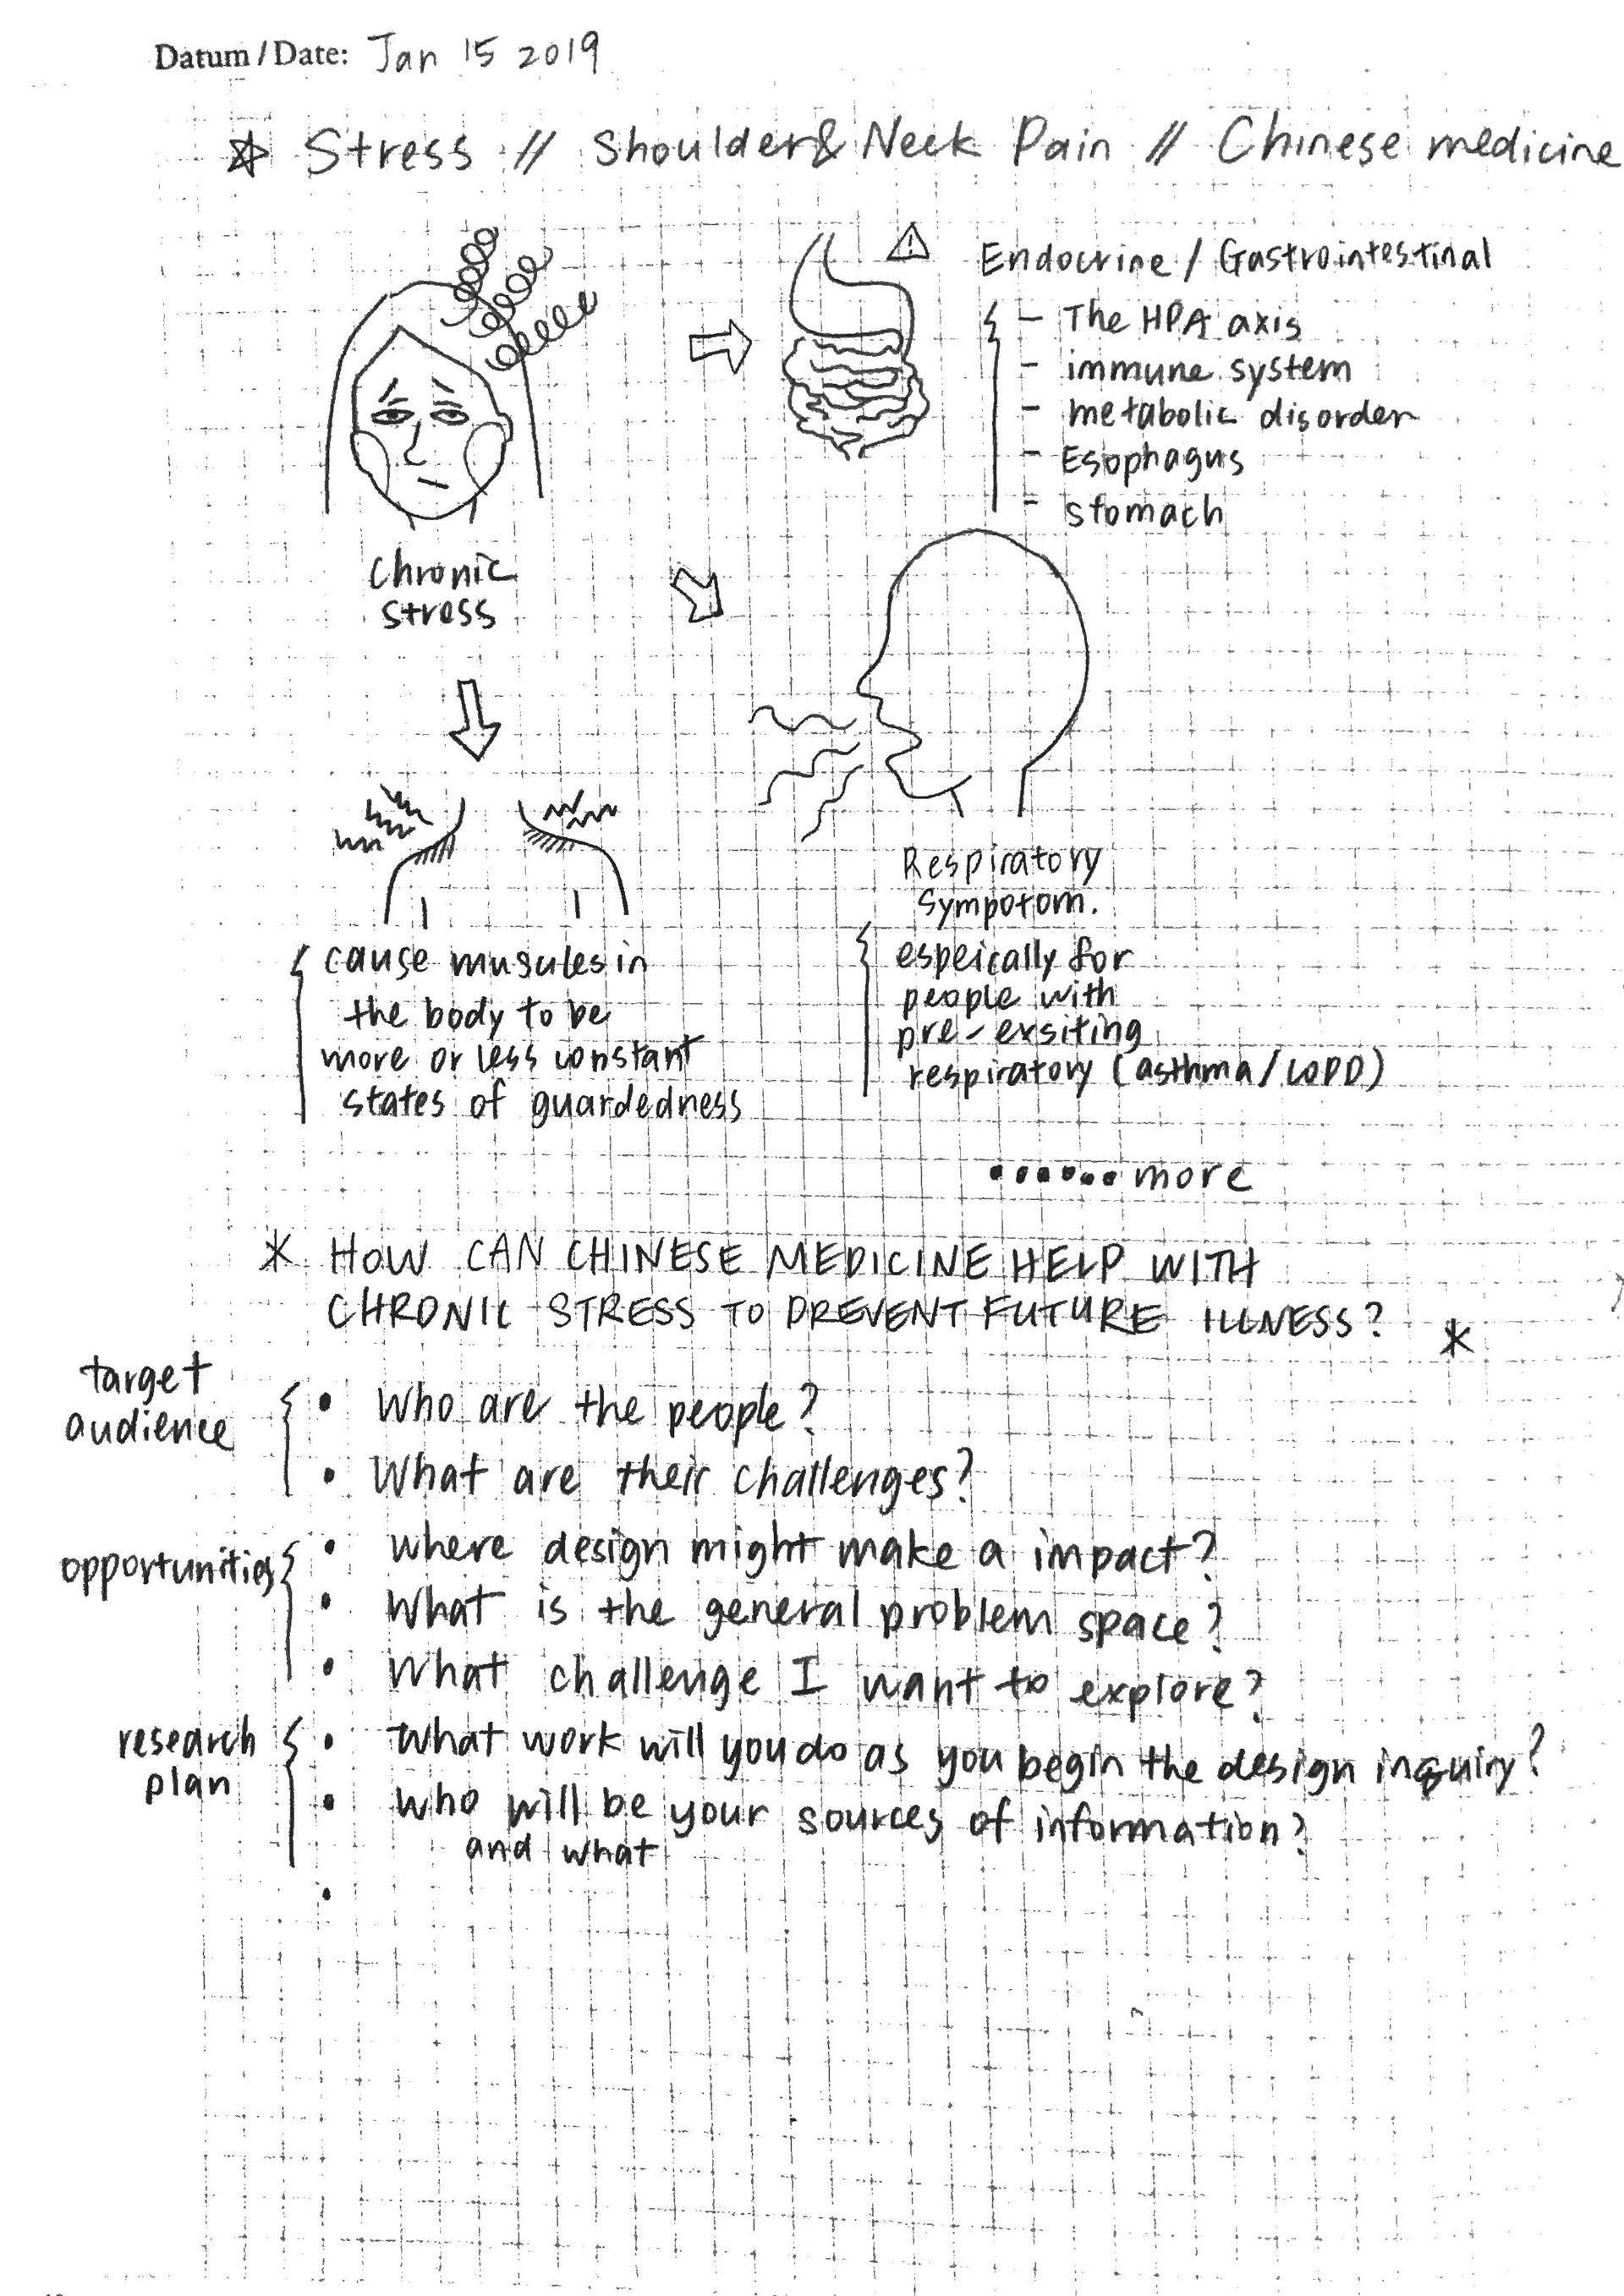 Datum / Date: Jan 15 2019
Stress // Shoulder & Neck Pain // Chinese medicine
Endocrine / Gastrointestinal
- The HPA axis
- immune system
- metabolic disorder
- Esophagus
- stomach
Chronic
stress
Respiratory
Sympotom.
cause muscules in
the body to be
more or less constant
states of guardedness
espeically for
people with
pre-exsiting
respiratory (asthma/COPD)
...... more
* HOW CAN CHINESE MEDICINE HELP WITH
CHRONIC STRESS TO PREVENT FUTURE ILLNESS? *
target
audience
• Who are the people?
• What are their challenges?
opportunities
• where design might make a impact?
• What is the general problem space?
• What challenge I want to explore?
research
plan
• What work will you do as you begin the design inquiry?
• who will be your sources of information?
and what
•